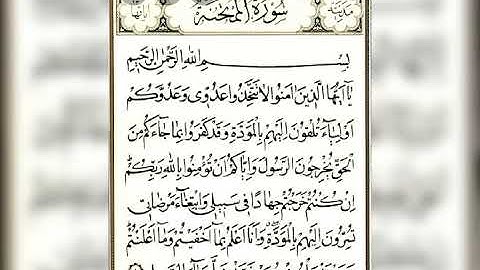 مدنية سورة الممتحنة آياتها
بسم الله الرحمن الرحيم
يَا أَيُّهَا الَّذِينَ آمَنُوا لَا تَتَّخِذُوا عَدُوِّي وَعَدُوَّكُمْ
أَوْلِيَاءَ تُلْقُونَ إِلَيْهِمْ بِالْمَوَدَّةِ وَقَدْ كَفَرُوا بِمَا جَاءَكُمْ مِنَ
الْحَقِّ يُخْرِجُونَ الرَّسُولَ وَإِيَّاكُمْ أَنْ تُؤْمِنُوا بِاللَّهِ رَبِّكُمْ
إِنْ كُنْتُمْ خَرَجْتُمْ جِهَادًا فِي سَبِيلِي وَابْتِغَاءَ مَرْضَاتِي
تُسِرُّونَ إِلَيْهِمْ بِالْمَوَدَّةِ وَأَنَا أَعْلَمُ بِمَا أَخْفَيْتُمْ وَمَا أَعْلَنْتُمْ